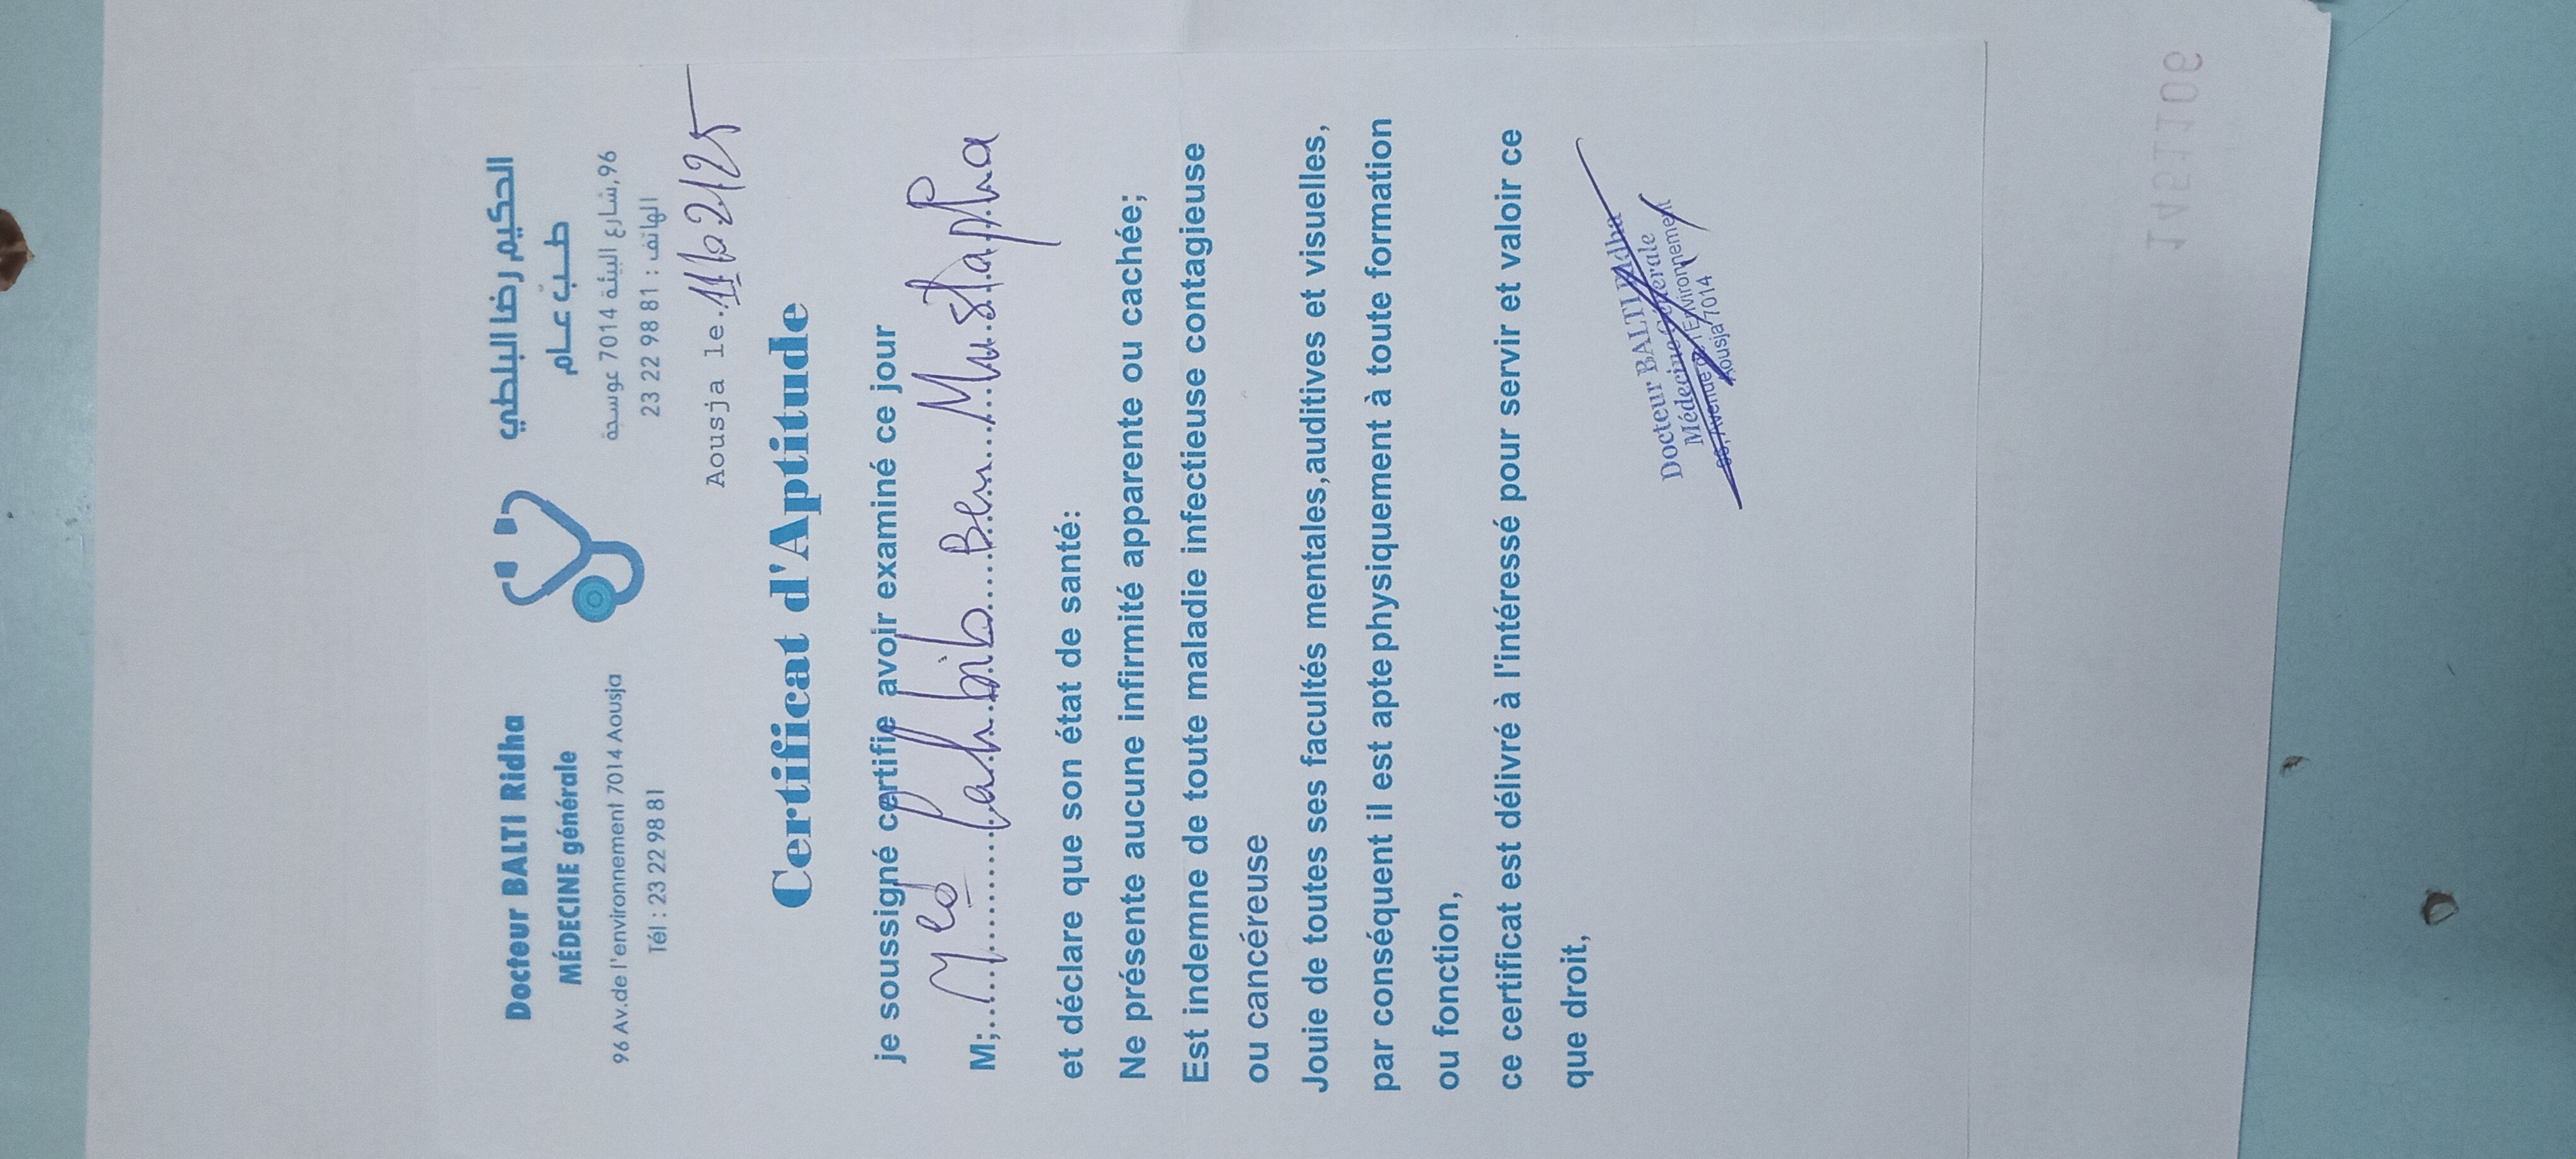 Docteur BALTI Ridha
MÉDECINE générale
96 Av.de l'environnement 7014 Aousja
Tél : 23 22 98 81
الحكيم رضا البلطي
طـب عـام
96,شارع البيئة 7014 عوسجة
الهاتف : 81 98 22 23
Aousja le.11/02/25
Certificat d'Aptitude
je soussigné certifie avoir examiné ce jour
M;....Med Lahbib Ben Mustapha
et déclare que son état de santé:
Ne présente aucune infirmité apparente ou cachée;
Est indemne de toute maladie infectieuse contagieuse
ou cancéreuse
Jouie de toutes ses facultés mentales,auditives et visuelles,
par conséquent il est apte physiquement à toute formation
ou fonction,
ce certificat est délivré à l'intéressé pour servir et valoir ce
que droit,
Docteur BALTI Ridha
Médecine Générale
96, Avenue de l'Environnement
Aousja 7014